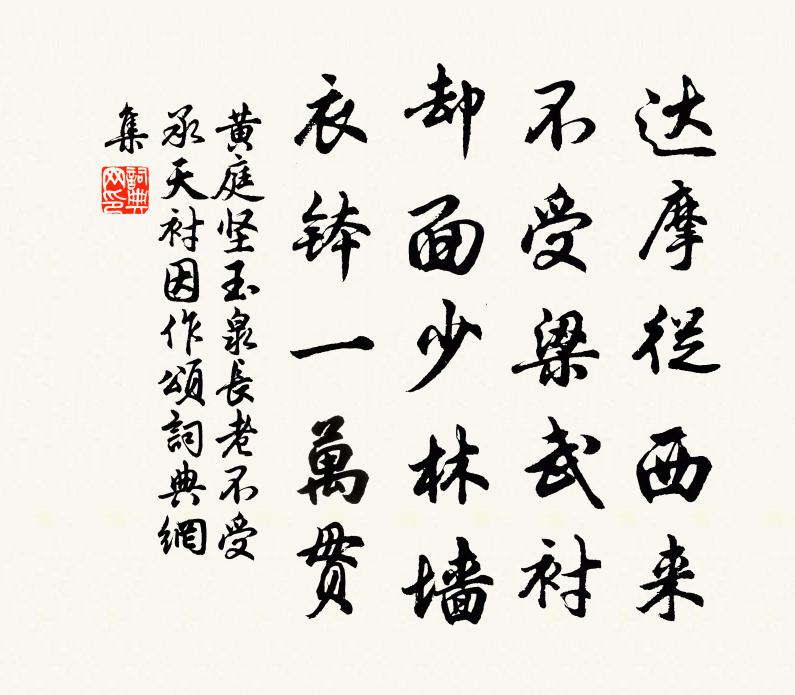 达摩從西来
不受梁武衬
却面少林墙
衣钵一萬贯
黄庭坚玉泉長老不受
承天衬因作頌詞典網
集
詞典
网印